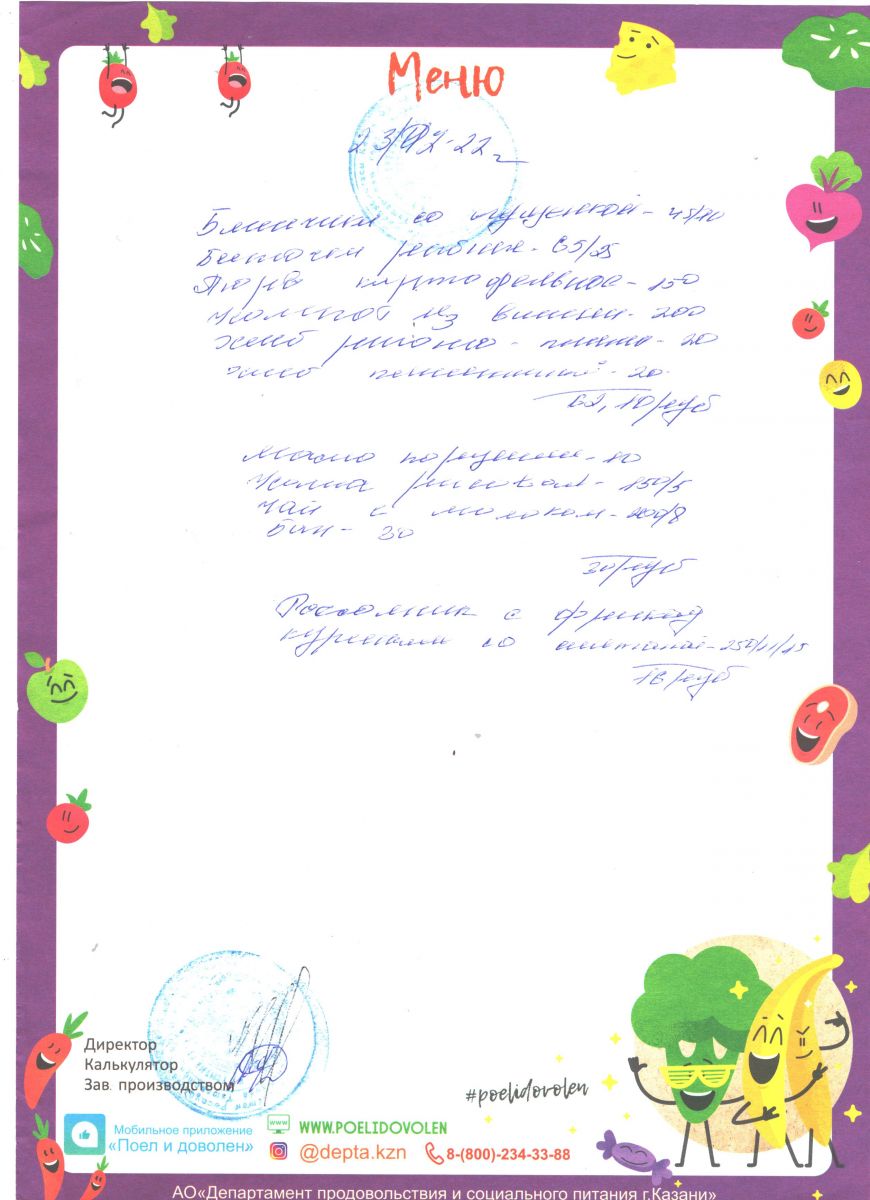 Меню
Блинчики со сгущенкой - 45/10
Биточки рыбные - 65/25
Пюре картофельное - 150
Компот из вишни - 200
Хлеб ржано - пшен - 20
хлеб пшеничный - 20
62,10 руб
Масло порциями - 10
Каша рисовая - 150/5
Чай с молоком - 200/8
Бан - 30
30 руб
Рассольник с фрикад
куриными со сметаной - 250/11/15
18 руб
Директор
Калькулятор
Зав. производством
#poelidovolen
Мобильное приложение
«Поел и доволен»
WWW.POELIDOVOLEN
@depta.kzn
8-(800)-234-33-88
АО«Департамент продовольствия и социального питания г.Казани»